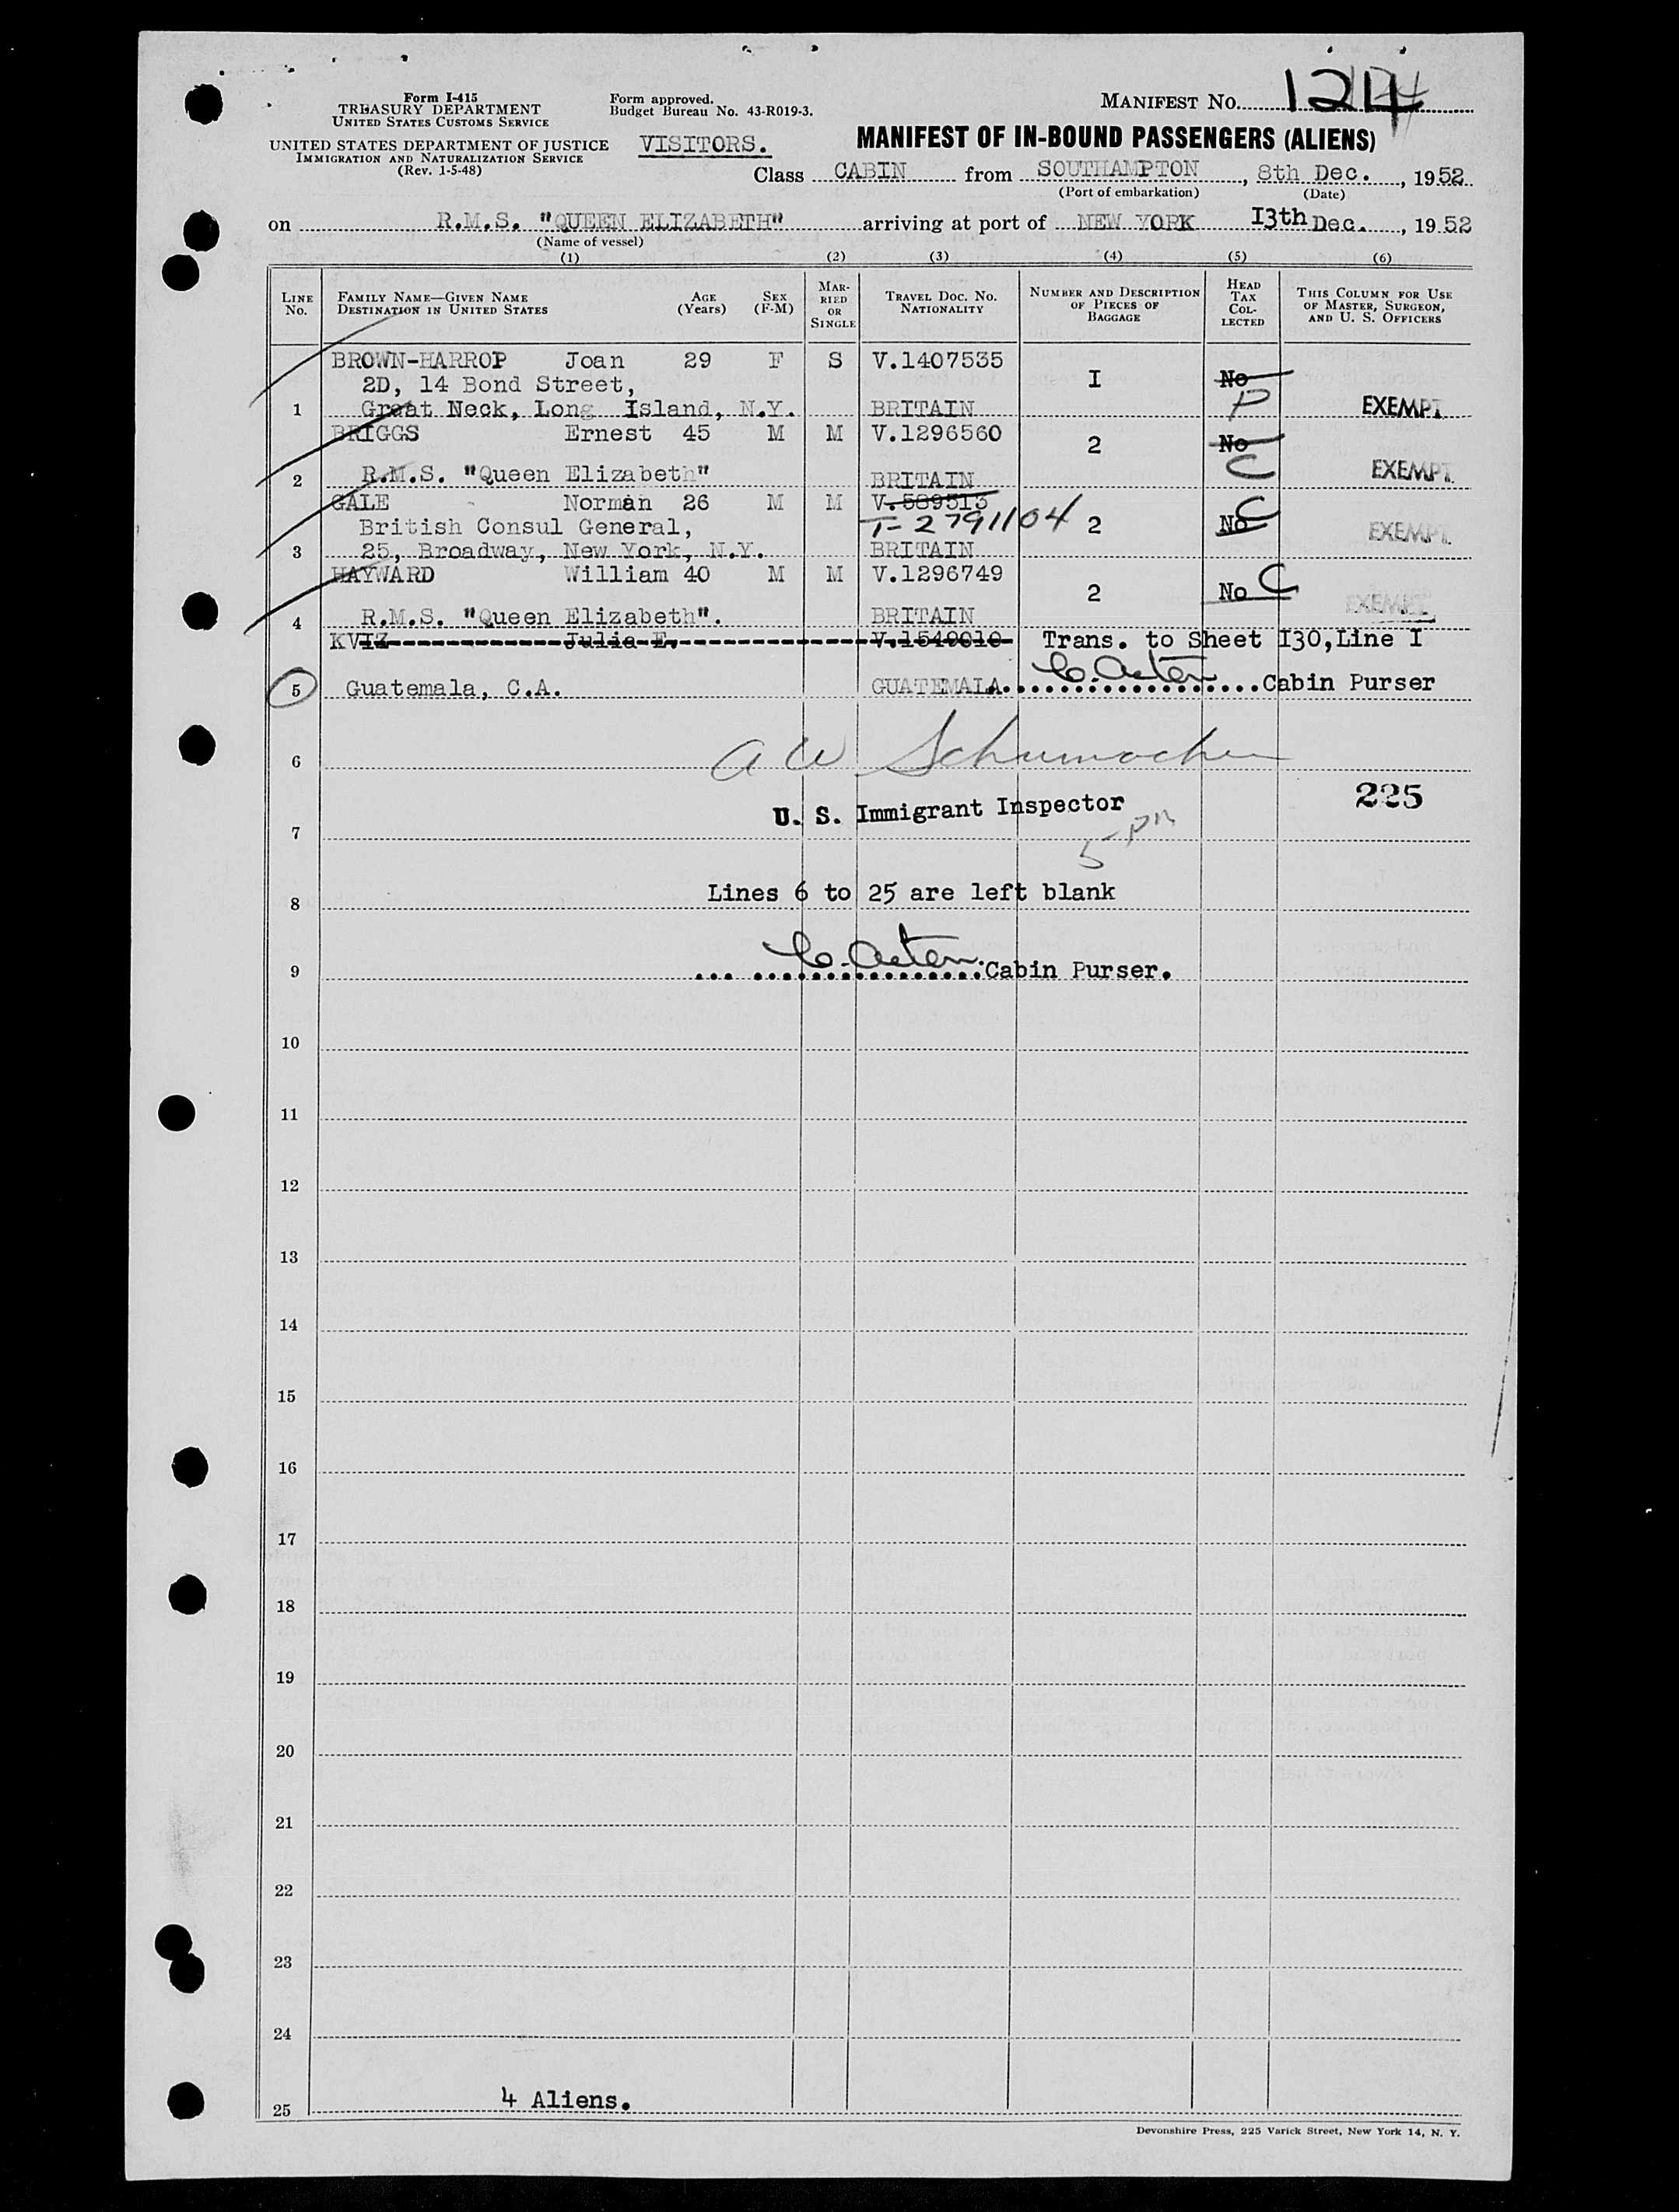 Form I-415
TREASURY DEPARTMENT
UNITED STATES CUSTOMS SERVICE
UNITED STATES DEPARTMENT OF JUSTICE
IMMIGRATION AND NATURALIZATION SERVICE
(Rev. 1-5-48)
Form approved.
Budget Bureau No. 43-R019-3.
VISITORS.
MANIFEST No. 124
MANIFEST OF IN-BOUND PASSENGERS (ALIENS)
Class CABIN from SOUTHAMPTON, 8th Dec., 1952
(Port of embarkation) (Date)
on R.M.S. "QUEEN ELIZABETH" arriving at port of NEW YORK I3th Dec., 1952
(Name of vessel)
(1) (2) (3) (4) (5) (6)
LINE No. FAMILY NAME—GIVEN NAME DESTINATION IN UNITED STATES AGE (Years) SEX (F-M) MARRIED OR SINGLE TRAVEL DOC. No. NATIONALITY NUMBER AND DESCRIPTION OF PIECES OF BAGGAGE HEAD TAX COLLECTED THIS COLUMN FOR USE OF MASTER, SURGEON, AND U. S. OFFICERS
BROWN-HARROP Joan 29 F S V.1407535
2D, 14 Bond Street, I No
1 Great Neck, Long Island, N.Y. BRITAIN P EXEMPT
BRIGGS Ernest 45 M M V.1296560
2 No
2 R.M.S. "Queen Elizabeth" BRITAIN C EXEMPT
GALE Norman 26 M M V.589513
British Consul General, T-2791104 2 No C EXEMPT
3 25, Broadway, New York, N.Y. BRITAIN
HAYWARD William 40 M M V.1296749
2 No C EXEMPT
4 R.M.S. "Queen Elizabeth". BRITAIN
KVIZ Julia E. V.1549010 Trans. to Sheet I30, Line I
5 Guatemala, C.A. GUATEMALA. Cabin Purser
6 A W Schumacher
225
U. S. Immigrant Inspector
7
5 PM
Lines 6 to 25 are left blank
8
9 Cabin Purser.
10
11
12
13
14
15
16
17
18
19
20
21
22
23
24
4 Aliens.
25
Devonshire Press, 225 Varick Street, New York 14, N. Y.